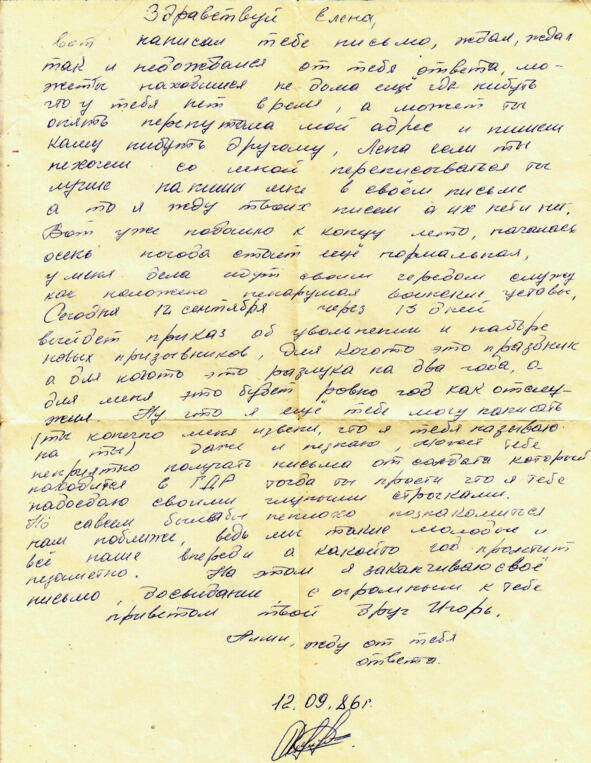 Здравствуй Елена,
вот написал тебе письмо, ждал, ждал
так и недождался от тебя ответа, мо-
жеты находишся не дома ещё где нибуть
что у тебя нет время, а может ты
опять перепутала мой адрес и пишеш
кому нибуть другому, Лена если ты
нехочеш со мной переписываться ты
лучше напиши мне в своём письме
а то я жду твоих писем а их нет и нет.
Вот уже подошло к концу лето, началась
осень погода стоит ещё нормальная,
у меня дела идут своим чередом служу
как положено ненарушая воинские уставы,
Сегодня 12 сентября через 15 дней
выйдет приказ об увольнении и наборе
новых призывников, для когото это праздник
а для когото это разлука на два года, а
для меня это будет ровно год как отслу-
жил. Ну что я ещё тебе могу написать
(ты конечно меня извени, что я тебя называю
на ты) даже и незнаю, может тебе
неприятно получать письма от солдата который
находится в ГДР тогда ты прости что я тебе
надоедаю своими глупыми строчками.
Но савсем былабы неплохо познакомиться
нам поближе, ведь мы такие молодые и
всё наше впереди а какойто год пролетит
незаметно. На этом я заканчиваю своё
письмо, досвидание, с огромным к тебе
приветом твой друг Игорь.
жду от тебя
ответа.
12.09.86г.